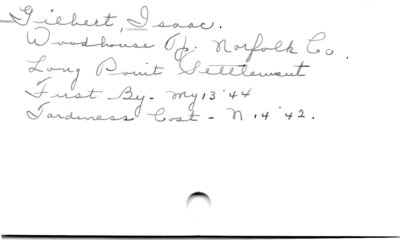 Gilbert, Isaac.
Woodhouse Tp. Norfolk Co.
Long Point Settlement
First By - My 13 '44
Tardiness Cost - N 14 '42.